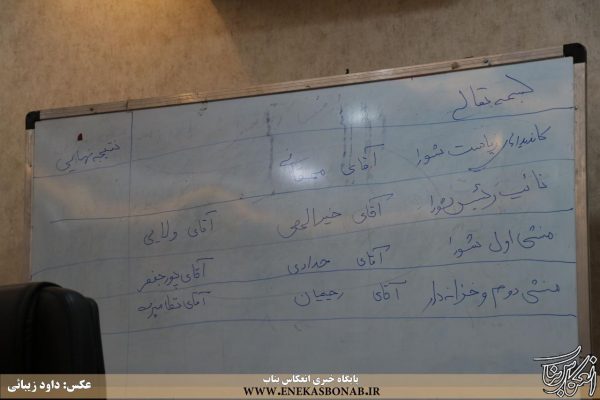 بسمه تعالی
کاندیدای ریاست شورا آقای نتیجه نهایی
نائب رئیس شورا آقای خیرالهی آقای ولایی
منشی اول شورا آقای حدادی آقای پورجعفر
منشی دوم و خزانه دار آقای رحیمیان آقای
عکس: داود زیبائی
پایگاه خبری انعکاس بناب
WWW.ENEKASBONAB.IR
انعکاس بناب